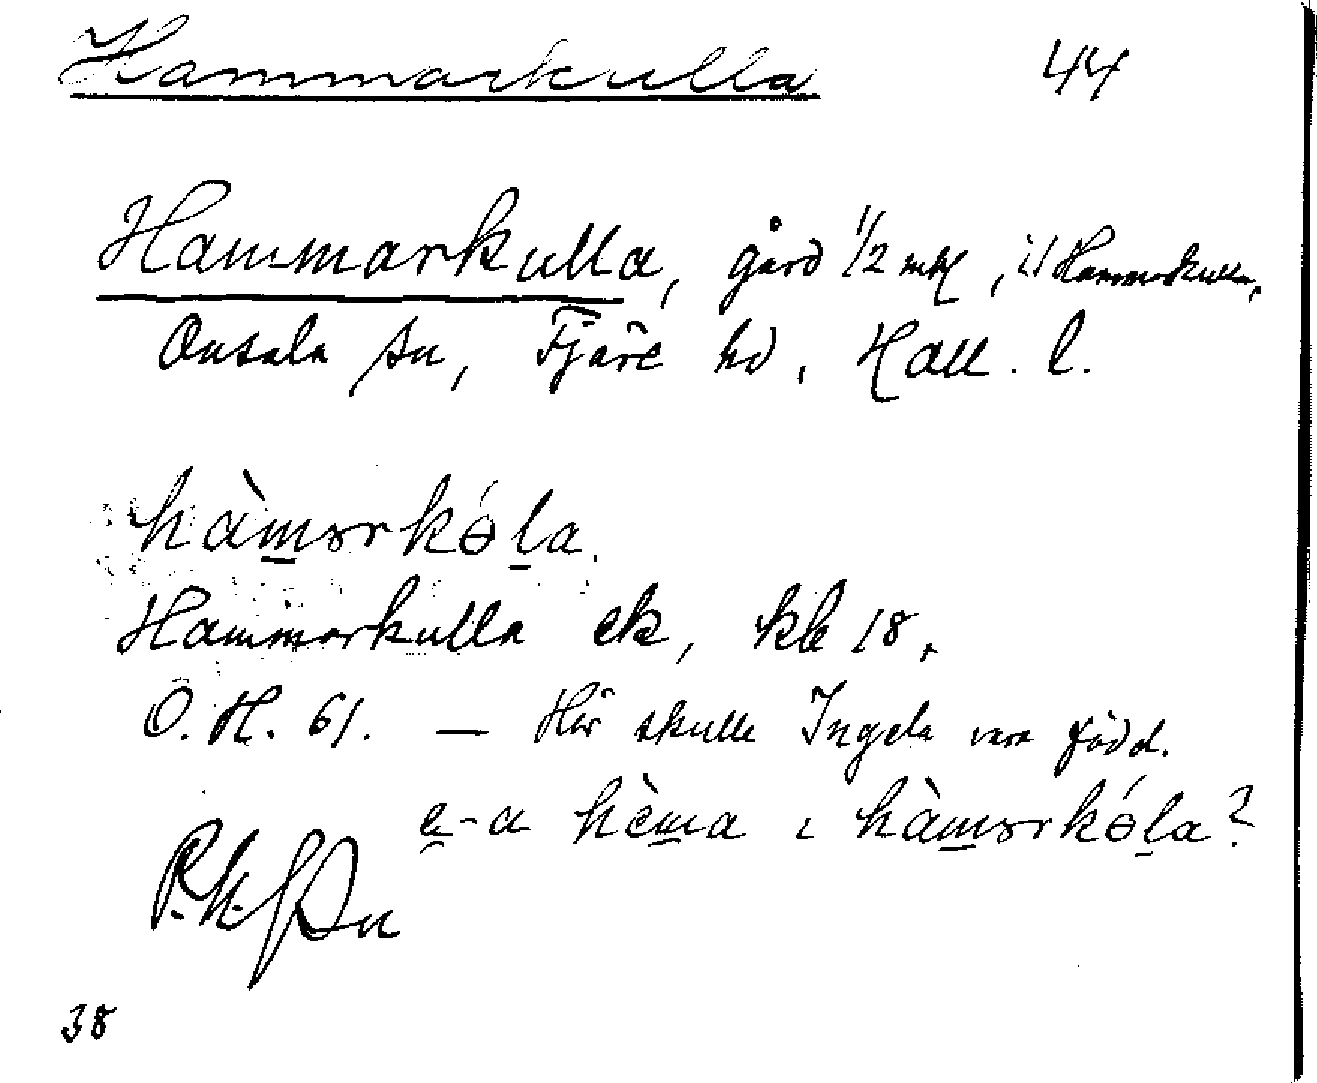 Hammarkulla 44
Hammarkulla, gård 1/2 mtl, i Hammarkulla,
Onsala sn, Fjäre hd, Hall. l.
hàmərkóla.
Hammarkulla ek, kbl 18,
O. H. 61. — Här skulle Ingela vara född.
e-a hèma ı hàmərkóla?
38